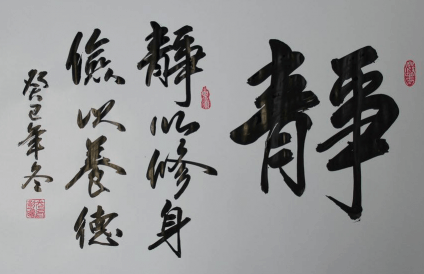 靜
靜以修身
儉以養德
癸巳年冬